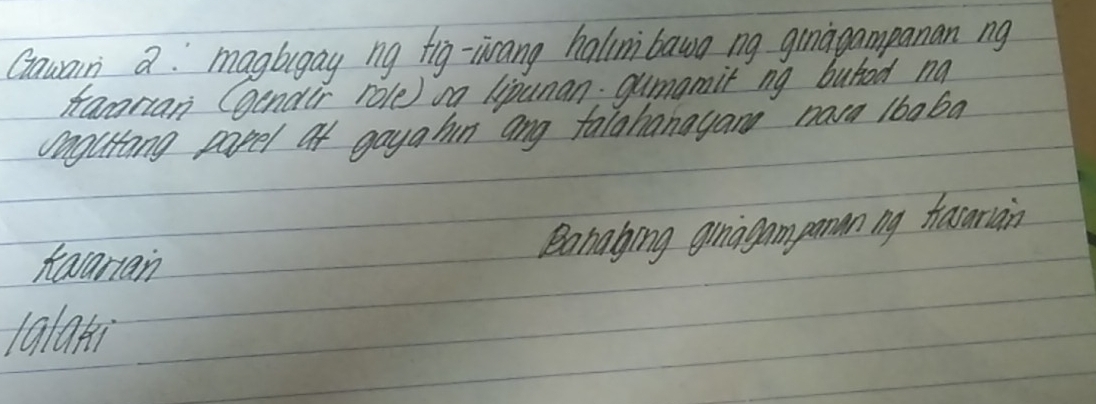 Gawain 2: magbigay ng tig-iisang halimbawa ng ginagampanan ng
kasarian (gender role) sa lipunan. gumamit ng bukod na
sagutang papel at gayahin ang talahanayang nasa ibaba
kasarian Bahaging ginagampanan ng kasarian
lalaki